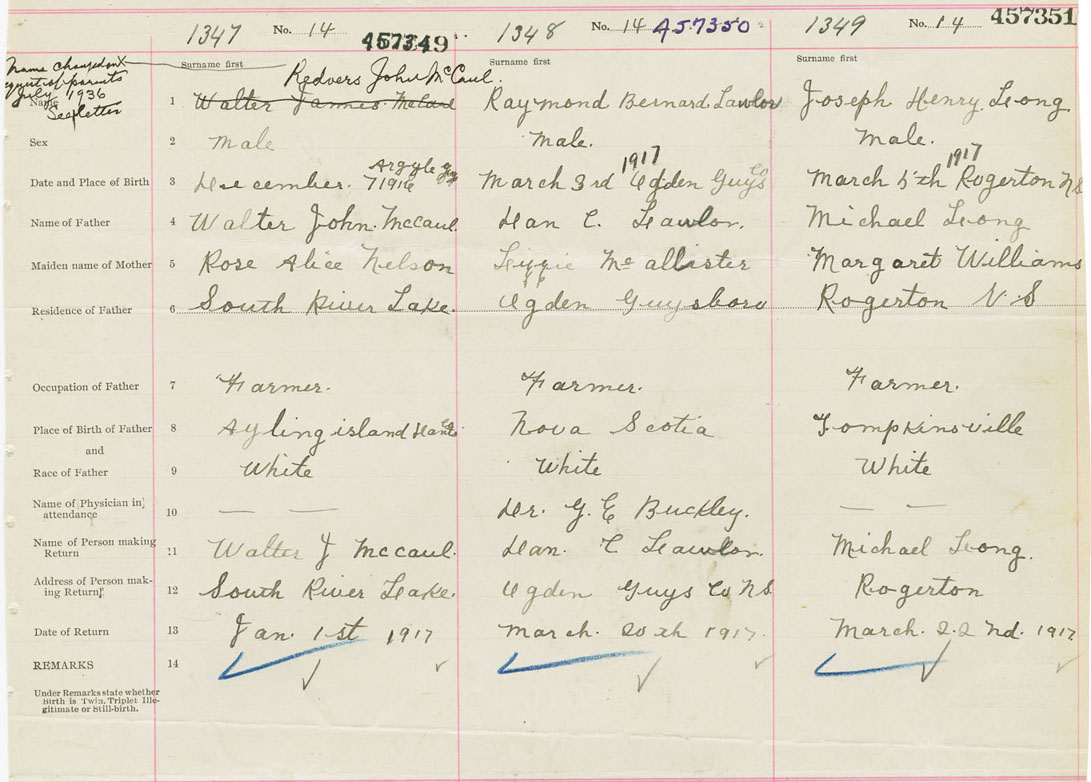 1347 No. 14 457349 1348 No. 14 457350 1349 No. 14 457351
Surname first Surname first Surname first
Name changed on
request of parents
July 1936
See letter
Redvers John McCaul.
Name 1 Walter James McCaul Raymond Bernard Lawlor Joseph Henry Leong
Sex 2 Male Male. Male.
Argyle Guy 1917 Co 1917
Date and Place of Birth 3 December. 7 1916 March 3rd Ogden Guys March 5th Rogerton N.S
Name of Father 4 Walter John. McCaul Dan C. Lawlor. Michael Leong
Maiden name of Mother 5 Rose Alice Nelson Lizzie Mc allister Margaret Williams
Residence of Father 6 South River Lake. Ogden Guysboro Rogerton N.S
Occupation of Father 7 Farmer. Farmer. Farmer.
Place of Birth of Father 8 Ayling island Nova Scotia Tompkinsville
and
Race of Father 9 White White White
Name of Physician in
attendance 10 — — Dr. G. E Buckley. — —
Name of Person making
Return 11 Walter J McCaul. Dan. C Lawlor. Michael Leong.
Address of Person mak-
ing Return 12 South River Lake. Ogden Guys Co N.S Rogerton
Date of Return 13 Jan. 1st 1917 March. 20th 1917. March. 22nd. 1917
REMARKS 14
Under Remarks state whether
Birth is Twin, Triplet Ille-
gitimate or Still-birth.